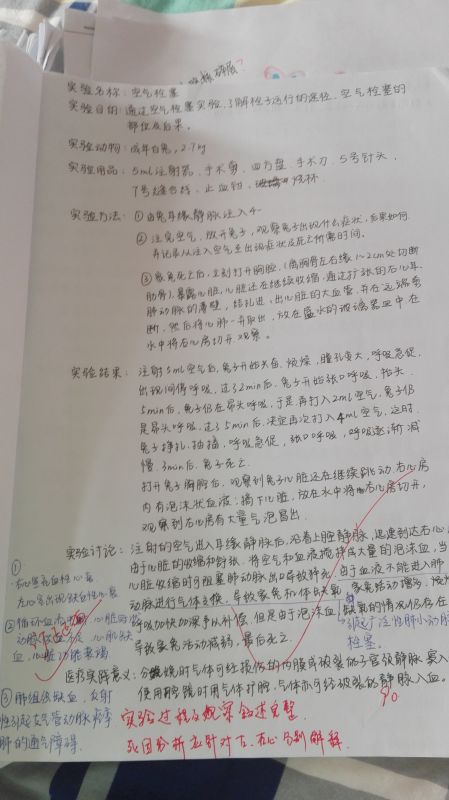 实验名称：空气栓塞
实验目的：通过空气栓塞实验，了解栓子运行的途径，空气栓塞的
部位及后果。
实验动物：成年白兔，2.7kg
实验用品：5ml注射器，手术剪，四方盘，手术刀，5号针头，
7号缝合线，止血钳，烧杯
实验方法：①由兔耳缘静脉注入
②注完空气，放开兔子，观察兔子出现什么症状，后果如何
并记录从注入空气至出现症状及死亡所需时间。
③家兔死亡后，立刻打开胸腔，(离胸骨左右缘1~2cm处切断
肋骨)，暴露心脏，心脏还在继续收缩，通过扩张的右心耳、
肺动脉的薄壁，结扎进、出心脏的大血管，并在远端剪
断，然后将心肺一并取出，放在盛水的玻璃器皿中在
水中将右心房切开，观察。
实验结果：注射5ml空气后，兔子开始头昏，烦燥，瞳孔变大，呼吸急促，
出现间停呼吸，过32min后，兔子开始张口呼吸，抬头，
5min后，兔子仍在昂头呼吸，于是再打入2ml空气，兔子仍
是昂头呼吸，过35min后，决定再次打入4ml空气，这时，
兔子挣扎，抽搐，呼吸急促，张口呼吸，呼吸逐渐减
慢，3min后，兔子死亡。
打开兔子胸腔后，观察到兔子心脏还在继续跳动，右心房
内有泡沫状血液；摘下心脏，放在水中将右心房切开，
观察到右心房有大量气泡冒出。
实验讨论：注射的空气进入耳缘静脉后，沿着上腔静脉，迅速到达右心，
由于心脏的收缩和舒张，将空气和血液搅拌成大量的泡沫血，当
心脏收缩时阻塞肺动脉出口导致猝死，由于血液不能进入肺
动脉进行气体交换，导致家兔和体缺氧，家兔活动增多，
呼吸加快加深予以补偿，但是由于泡沫血，缺氧的情况仍存在
导致家兔活动减弱，最后死亡。
广泛性肺小动脉
栓塞。
①
右心室充血性心衰
左心室出现缺血性心衰
心脏功能衰竭
③肺组织缺血，反射
性引起支气管动脉痉挛
肺的通气障碍。
医疗实践意义：分娩时气体可经损伤的内膜或破裂的子宫颈静脉窦入
使用腔镜时用气体扩腔，气体亦可经破裂的静脉入血。
90
实验过程及观察叙述完整
死因分析应针对左、右心分别解释。